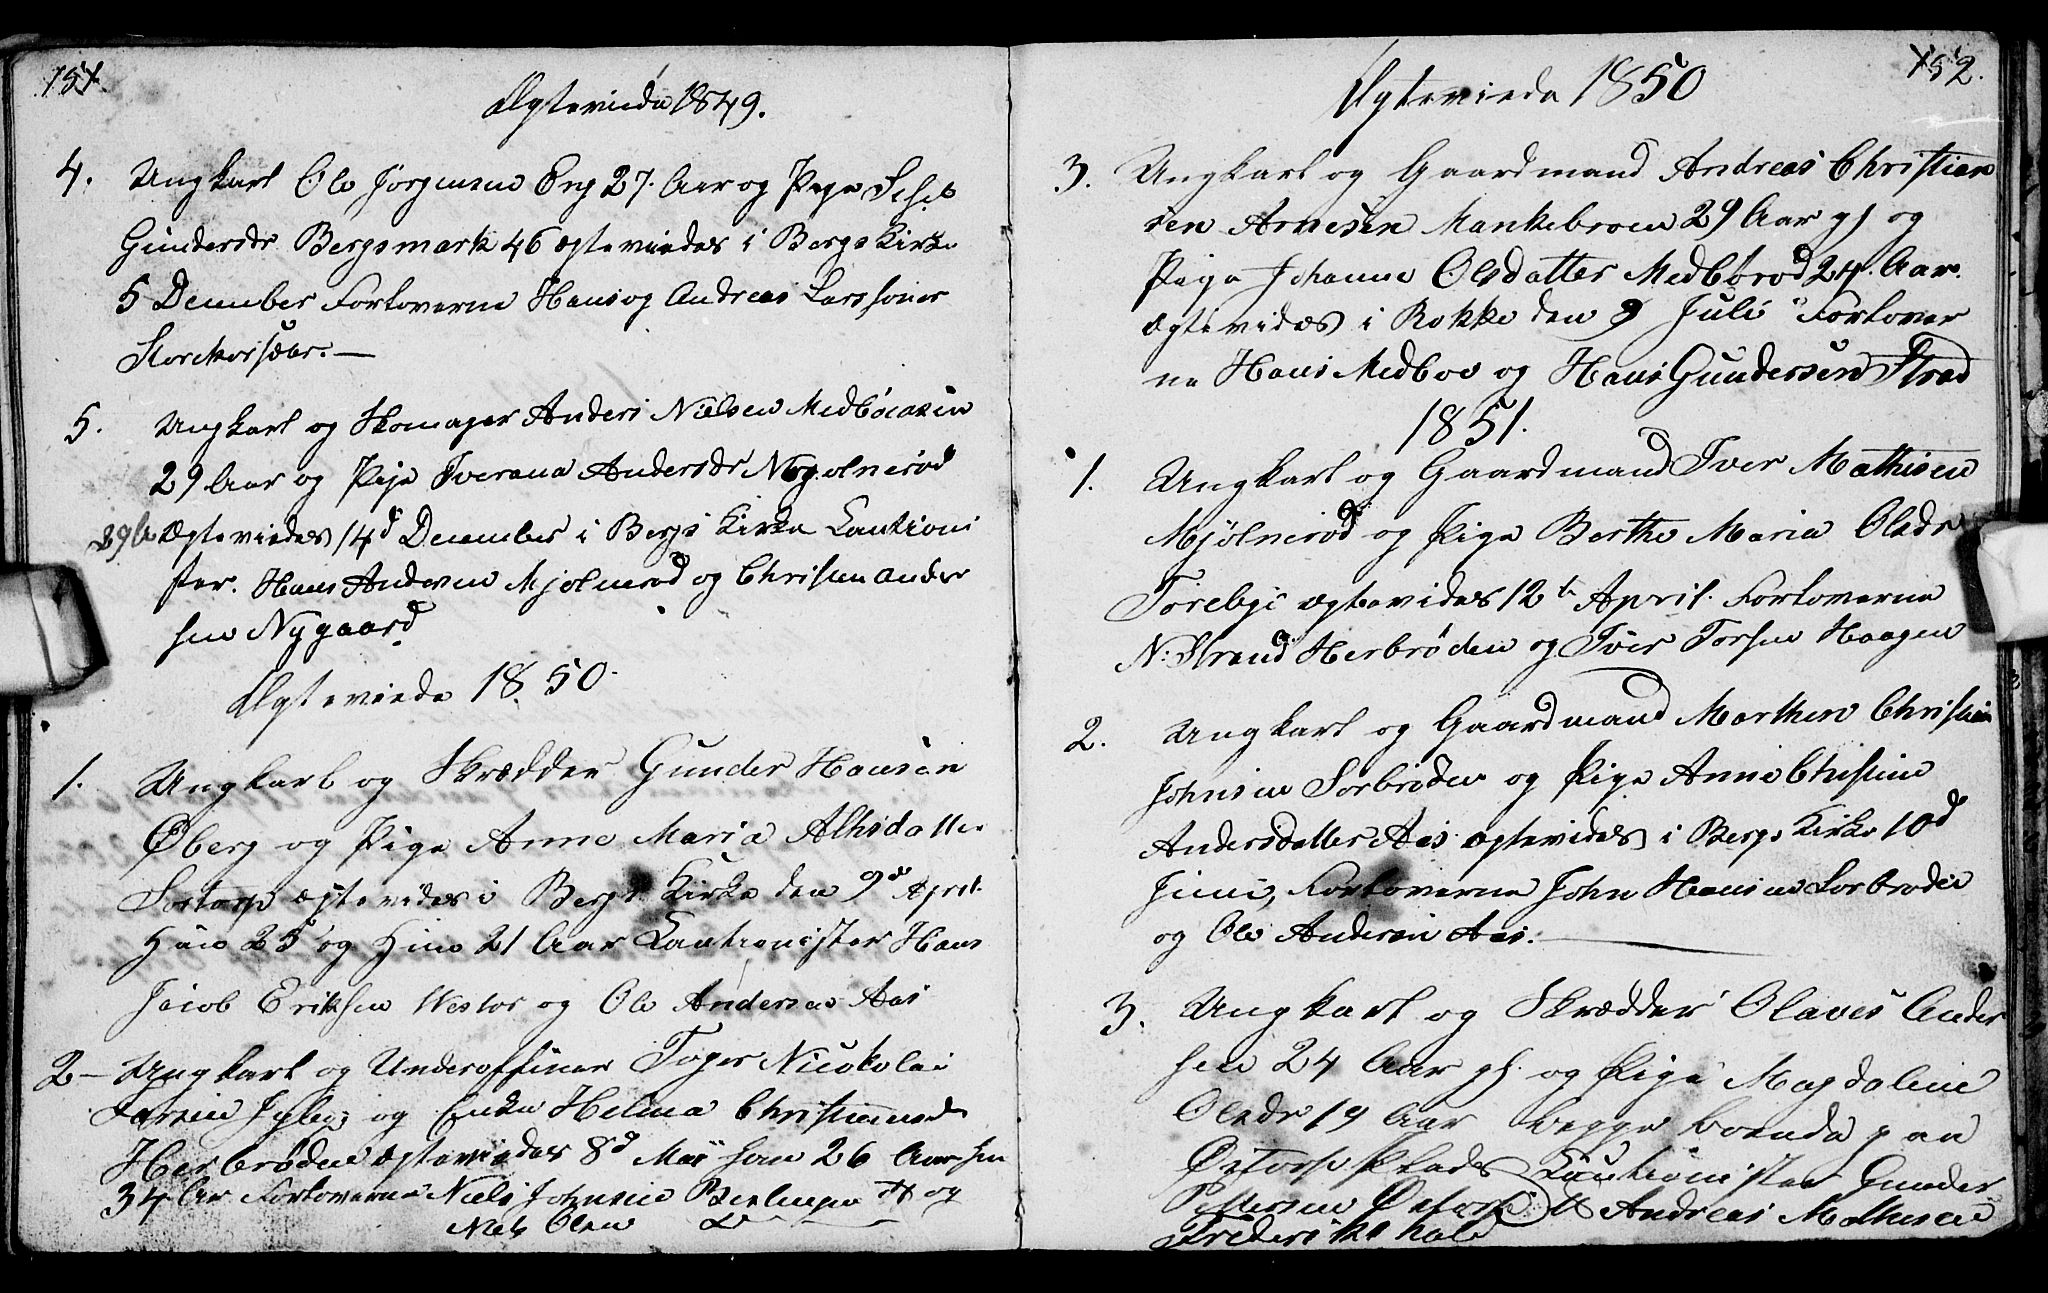 151.
Ægteviede 1849.
4. Ungkarl Ole Jørgensen Eng 27. Aar og Pige
Gundersdr Bergsmark 46 ægteviedes i Bergs Kirke
5 December Forloverne Hans og Andreas Larssoner
5. Ungkarl og Skomager Anders Nielsen
29 Aar og Pige Iverana Andersdr
Ægteviedes 14d December i Bergs Kirke Cautioni
ster. Hans Andersen Mjølnerød og Christian Ander
sen Nygaard
Ægteviede 1850.
1. Ungkarl og Skrædder Gunder Hansen
Øberg og Pige Anne Maria
Sortorp ægtevides i Bergs Kirke den 9de April
Han 25 og Hun 21 Aar Cautionister Hans
Jacob Eriksen og Ole Andersen Aas
2- Ungkarl og Underofficer Toger Nicokolai
Larsen og Enke Helena
Herbrøden ægteviedes 8d Mai han 26 Aar hun
34 Ar Forloverne Niels Johnsen og
Niels Olsen
152.
Ægteviede 1850
3. Ungkarl og Gaardmand Andreas Christian
sen Arnesen Mankebroen 29 Aar gl og
Pige Johanne Olsdatter Medbørød 24. Aar.
ægtevides i Rokke den 9 Juli Forlover
ne Hans Medboe og Hans Gundersen
1851.
1. Ungkarl og Gaardmand Iver Mathisen
Mjølnerød og Pige Berthe Maria Olsdr
Torebye ægtevides 12te April. Forloverne
N: Strand Herbrøden og Iver Torsen Haagen
2. Ungkarl og Gaardmand Marthin Christian
Johnsen Sorbrøden og Pige Anne Christine
Andersdatter Aas ægtevides i Bergs Kirke 10d
Juni, Forloverne John Hansen Sorbrøden
og Ole Andersen Aas.
3. Ungkarl og Skrædder Olaves Ander
sen 24 Aar gl. og Pige Magdalene
Olsdr 19 Aar begge boende paa
Østorp Plads Cautionister Gunder
Pettersen Østorp & Andreas Mathesen
Frederikshald